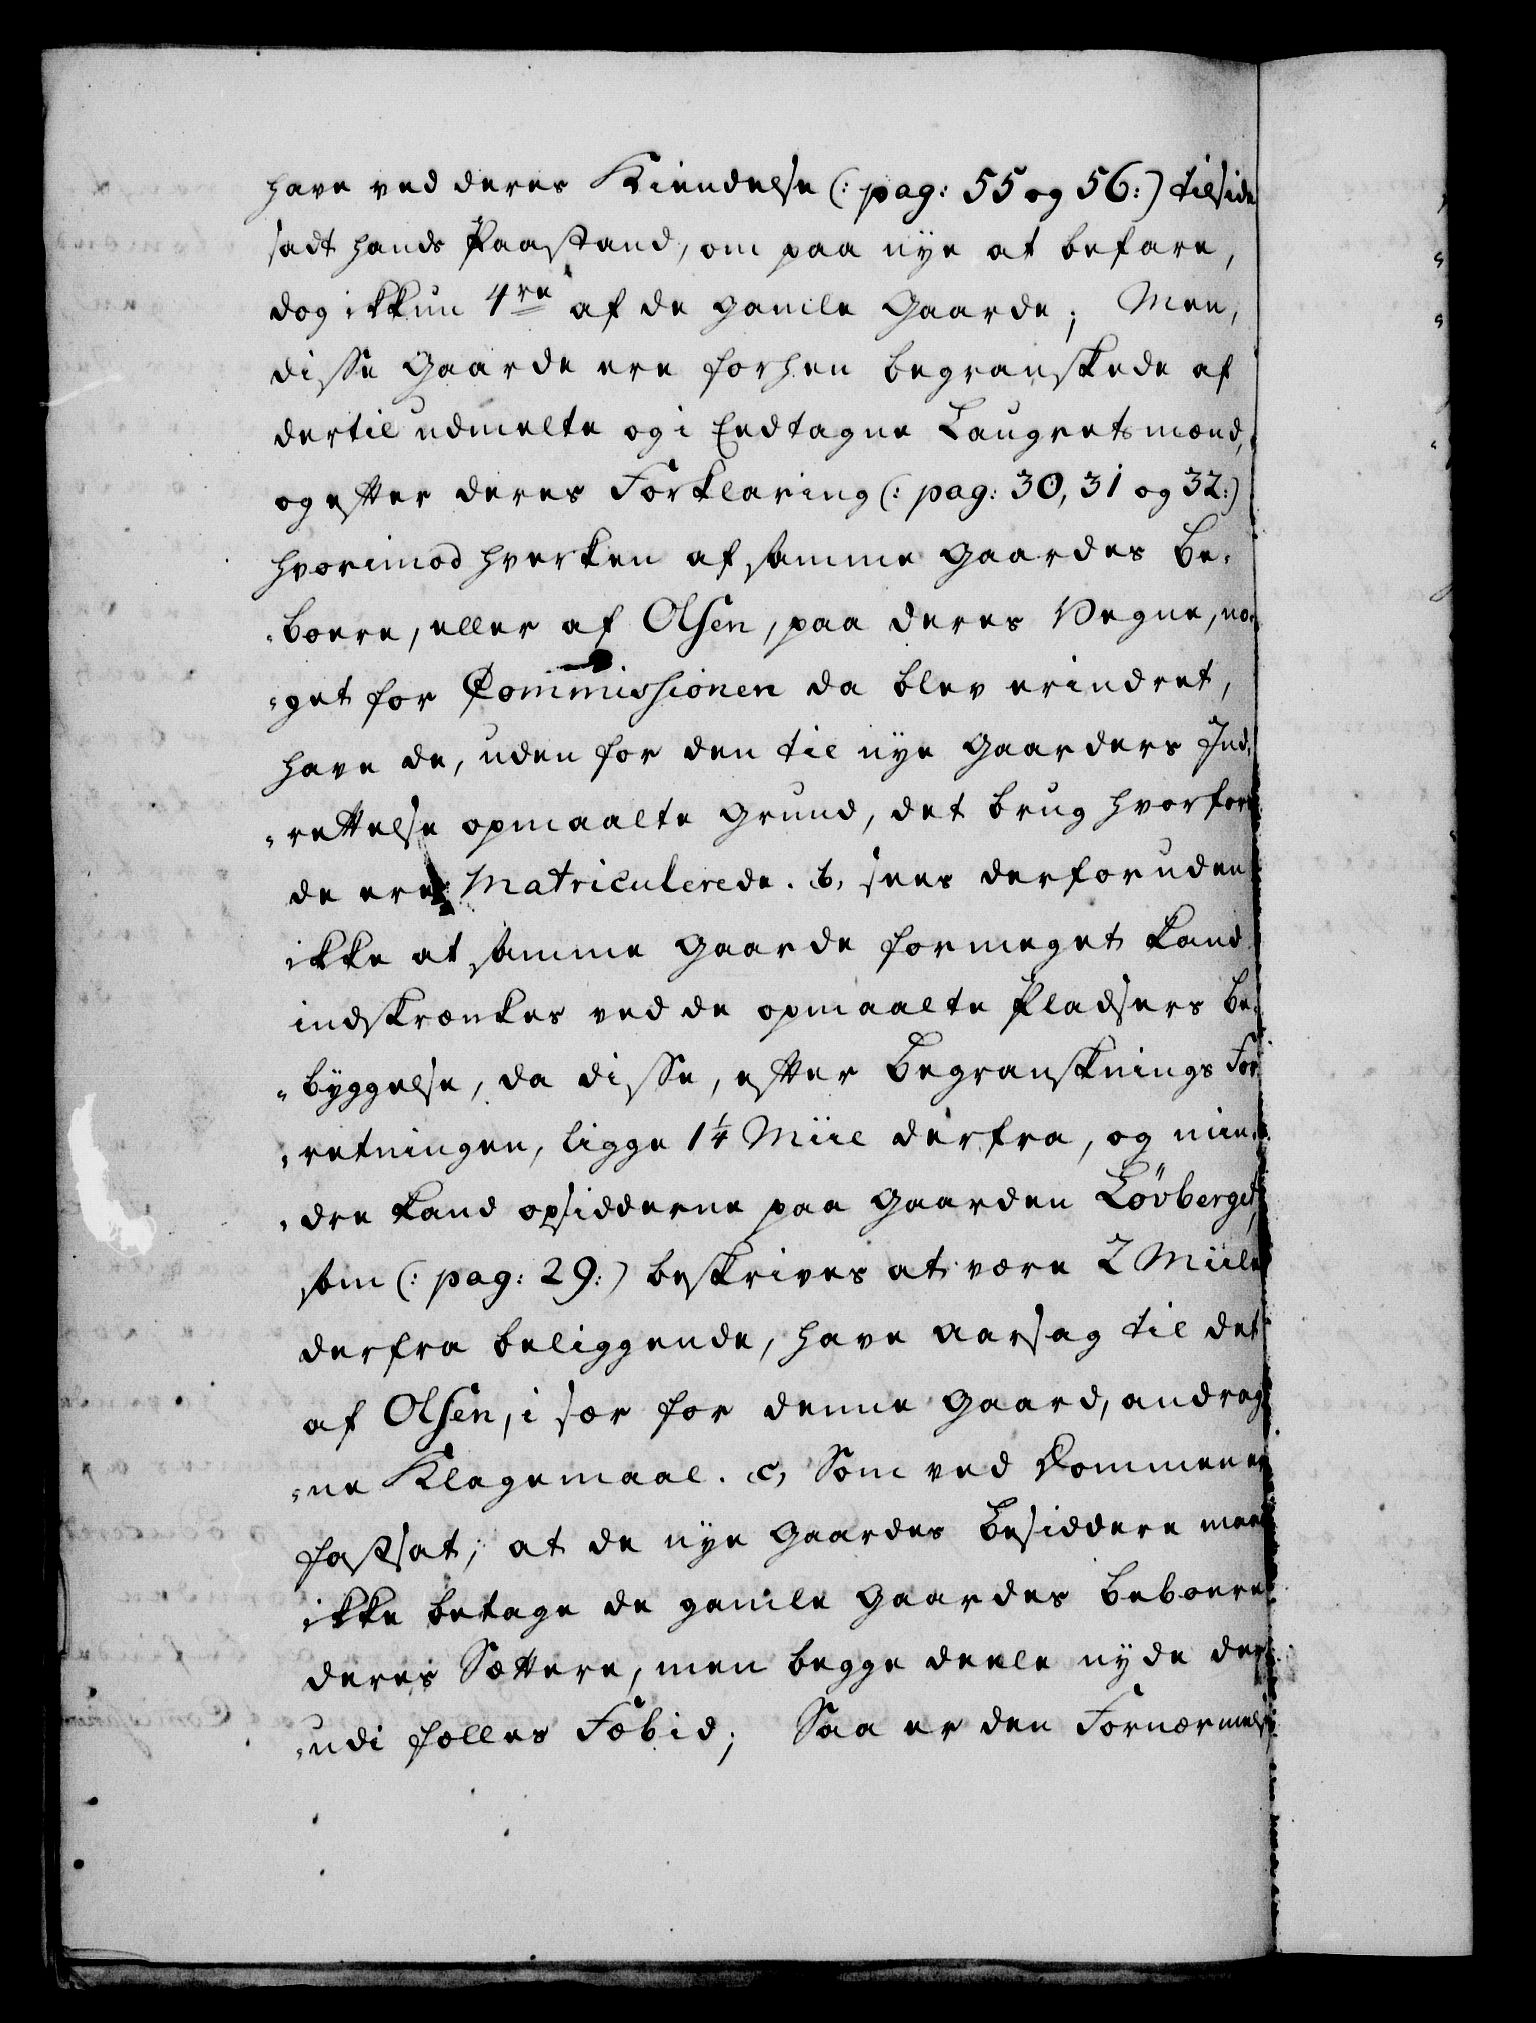 have ved deres Kiendelse (: pag: 55 og 56:) tilside
sadt hands Paastand, om paa nye at befare,
dog ikkun 4re af de gamle Gaarde; Men,
disse Gaarde ere forhen begranskede af
dertil udmelte og i Eedtagne Laugretsmænd,
og efter deres Forklaring (: pag: 30, 31 og 32:)
hvorimod hverken af samme Gaardes Be-
-boere, eller af Olsen, paa deres Vegne, no-
-get for Commissionen da blev erindret,
have de, uden for den til nye Gaarders Ind-
-rettelse opmaalte Grund, det brug hvorfore
de ere Matriculerede. b, sees derforuden
ikke at samme Gaarde formeget kand
indskrænkes ved de opmaalte Pladsers be-
-byggelse, da disse, efter Begransknings For-
-retningen, ligge 1¼ Miil derfra, og min-
-dre kand opsidderne paa Gaarden Lövberget,
som (: pag: 29:) beskrives at være 2 Miile
derfra beliggende, have aarsag til det
af Olsen, i sær for denne Gaard, andrag-
-ne Klagemaal. c, Som ved Dommen er
fastsat, at de nye Gaardes Besiddere maae
ikke betage de gamle Gaardes Beboere
deres Sættere, men begge deele nyde der-
-udi fælles Fæbid; Saa er den Fornærmelse